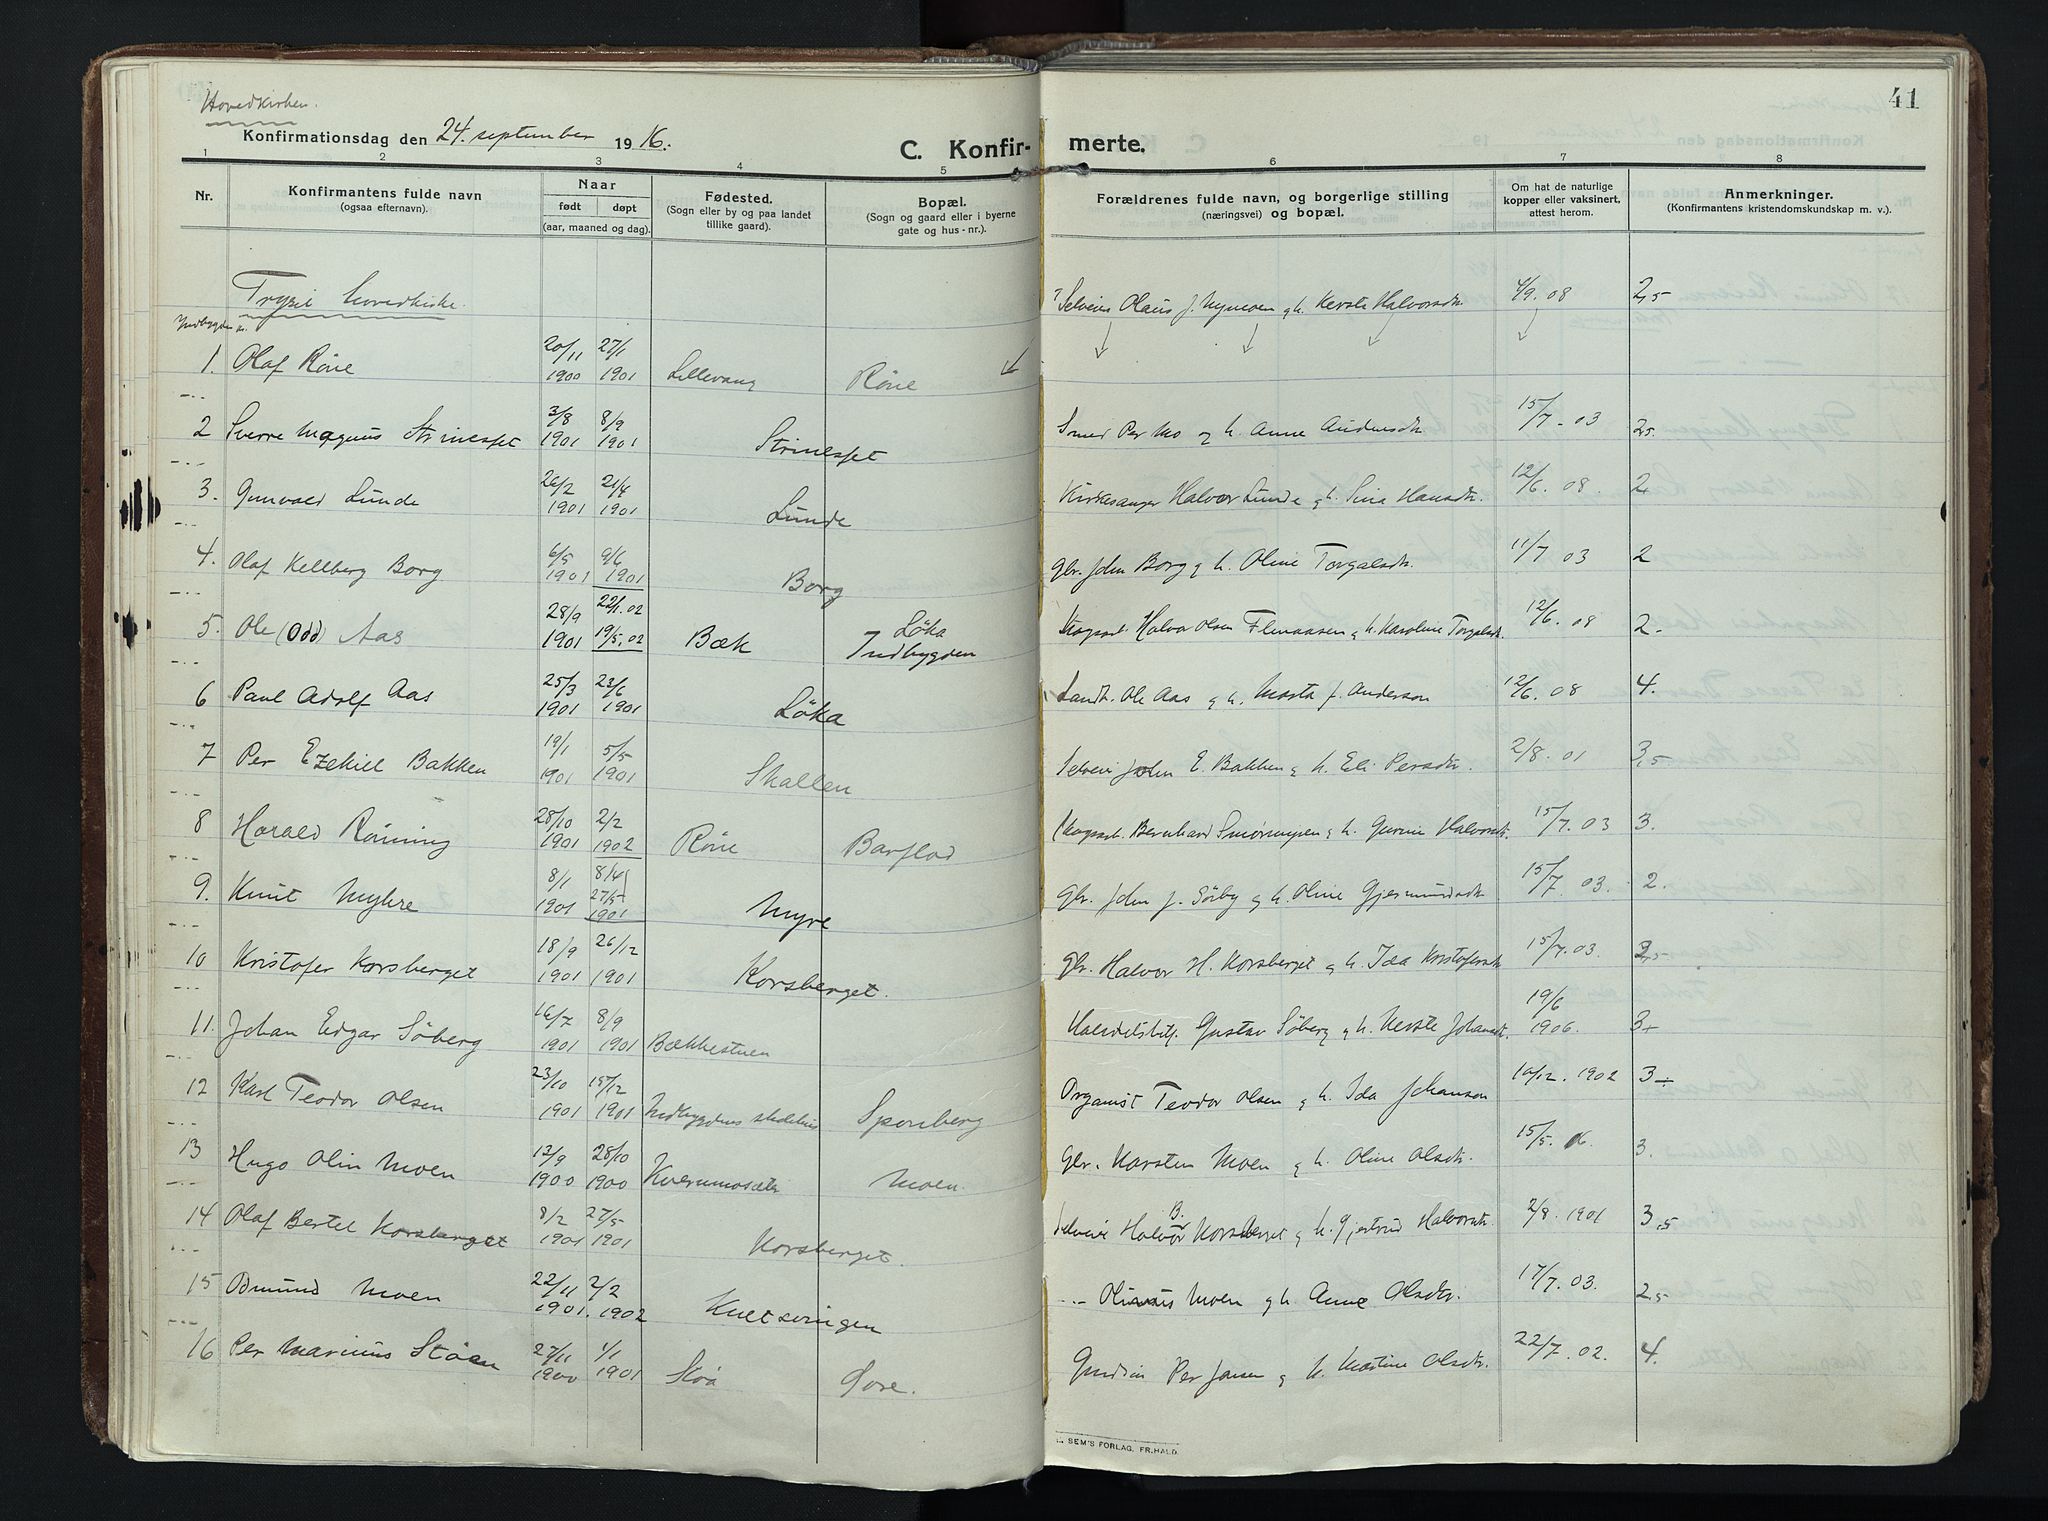 Hovedkirken.
Konfirmationsdag den 24. september 1916.
C. Konfirmerte.
41
1 2 3 4 5 6 7 8
Nr.
Konfirmantens fulde navn (ogsaa efternavn).
Naar født døpt (aar, maaned og dag).
Fødested. (Sogn eller by og paa landet tillike gaard).
Bopæl. (Sogn og gaard eller i byerne gate og hus-nr.).
Forældrenes fulde navn, og borgerlige stilling (næringsvei) og bopæl.
Om hat de naturlige kopper eller vaksinert, attest herom.
Anmerkninger. (Konfirmantens kristendomskundskap m. v.).
Trysil hovedkirke.
Selveier Olaus J. Nymoen g h. Kerste Halvorsdt. 4/9. 08 2,5
Indbygden
1. Olaf Röne 20/11 1900 27/1 1901 Lillevang Röne
2 Sverre Magnus Strinesset 3/8 1901 8/9 1901 Strinesset Smed Per Mo g h. Anne Andersdt. 15/7 - 03 2,5.
3. Gunvald Lunde 26/2 1901 21/4 1901 Lunde Kirkesanger Halvor Lunde g h. Sina Hansdt. 12/6. 08. 2
4. Olaf Kellberg Borg 6/5 1901 9/6 1901 Borg Gbr. John Borg g h. Oline Torgalsdt. 11/7 03 2
5. Ole (Odd) Aas 28/9 1901 22/1. 02 19/5. 02 Bæk Löka Indbygden Skogsarb. Halvor Olsen Flenaasen g h. Karoline Torgalsdt. 12/6. 08 2.-
6 Paul Adolf Aas 25/3 1901 23/6 1901 Löka Landh. Ole Aas g h. Marta f. Anderson 12/6. 08 4.
7 Per Ezekiel Bakken 19/1 1901 5/5 1901 Skallen Selveier John E. Bakken g h. Eli Persdt. 2/8. 01 3,5.
8 Harald Rönning 28/10 1901 2/2 1902 Röne Barflod Skogsarb. Bernhard Smörmyren g h. Gurine Halvorsdt. 15/7. 03 3.
9. Knut Myhre 8/1 1901 8/4 27/5 1901 Myre Gbr. John J. Sörby g h. Oline Gjermundsdt. 15/7. 03. 2.
10 Kristofer Korsberget 18/9 1901 26/12 1901 Korsberget. Gbr. Halvor H. Korsberget g h. Ida Kristofersdt. 15/7. 03. 2,5
11. Johan Edgar Söberg 16/7 1901 8/9 1901 Bækkestuen Handelsbetj. Gustav Söberg g h. Kerste Johansdt. 19/6 1906. 3-
12 Karl Teodor Olsen 23/10 1901 15/12 1901 Indbygdens skolehus Sponberg Organist Teodor Olsen g h. Ida Johanson 10/12. 1902 3-
13 Hugo Olin Moen 12/9 1900 28/10 1900 Kvernmosæter Moen. Gbr. Karsten Moen g h. Oline Olsdt. 15/5. 16. 3.
14 Olaf Bertel Korsberget 8/2 1901 27/5 1901 Korsberget. Selveier Halvor B. Korsberget g h. Gjertrud Halvorsdt. 2/8. 1901 3,5
15 Odmund Moen 22/11 1901. 2/2 1902 Knetsvingen -.- Olinius Moen g h. Anne Olsdt. 17/7. 03. 2,5
16 Per Marinus Stöen 27/11 1900 4/1 1901 Stöa Gore. Per Jansen g h. Martine Olsdt. 22/7. 02. 4.
SEM'S FORLAG, FR.HALD.